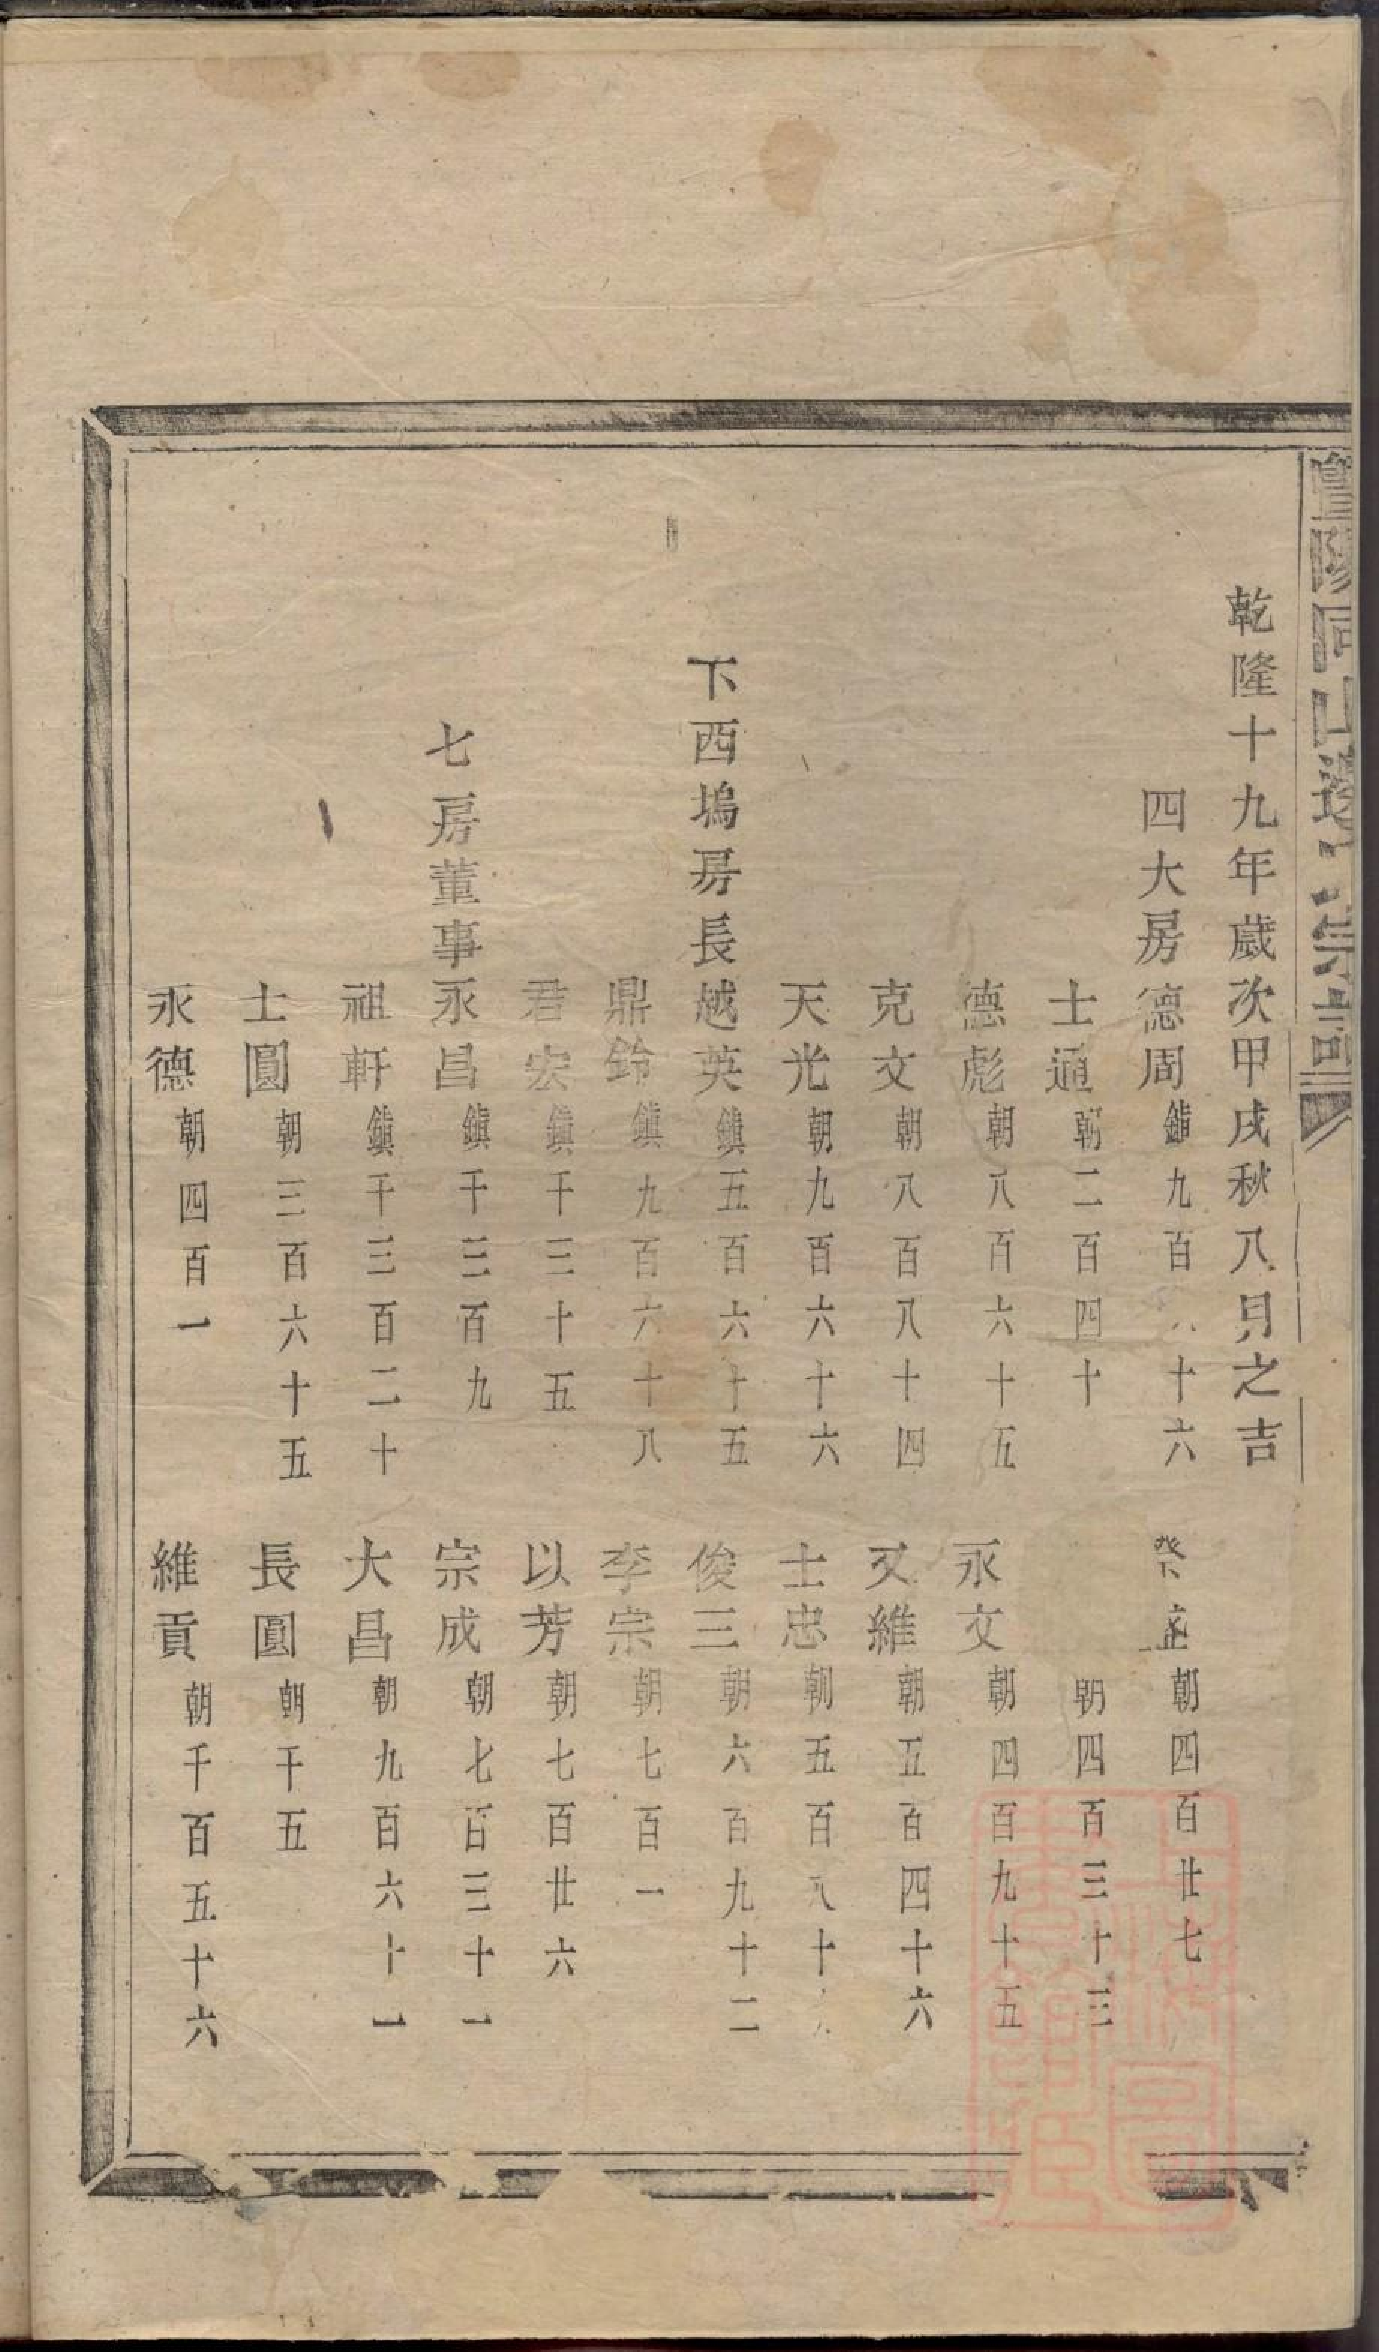 暨陽同山邊氏宗譜
乾隆十九年歲次甲戌秋八月之吉
四大房德周鎮九百十六 朝四百廿七
士通朝二百四十 朝四百三十三
德彪朝八百六十五 永文朝四百九十五
克文朝八百八十四 又維朝五百四十六
天光朝九百六十六 士忠朝五百八十
下西塢房長越英鎮五百六十五 俊三朝六百九十二
鼎鈴鎮九百六十八 李宗朝七百一
君宏鎮千三十五 以芳朝七百廿六
七房董事永昌鎮千三百九 宗成朝七百三十一
祖軒鎮千三百二十 大昌朝九百六十一
士圓朝三百六十五 長圓朝千五
永德朝四百一 維貢朝千百五十六